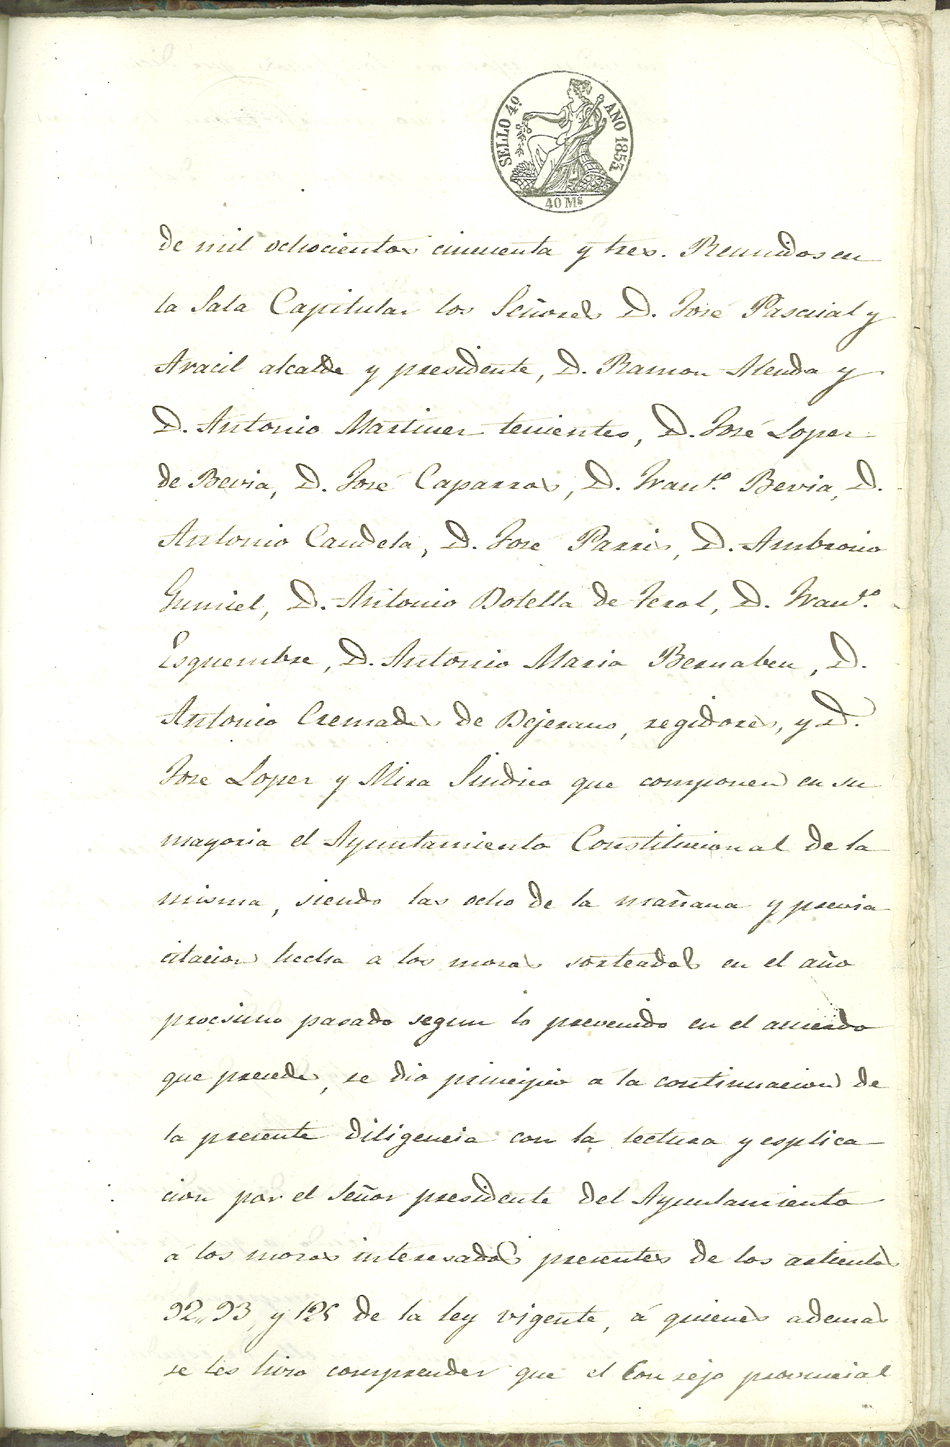 SELLO 4º AÑO 1853.
40 Ms
de mil ochocientos cincuenta y tres. Reunidos en
la Sala Capitular los Señores D. José Pascual y
Aracil alcalde y presidente, D. Ramon Alenda y
D. Antonio Martinez tenientes, D. José Lopez
de Bevia, D. José Caparros, D. Franco. Bevia, D.
Antonio Candela, D. José Parres, D. Ambrosio
Gumiel, D. Antonio Botella de Terol, D. Franco.
Esquembre, D. Antonio Maria Bernabeu, D.
Antonio Cremades de Bejerano, regidores, y D.
José Lopez y Mira Sindico que componen en su
mayoria el Ayuntamiento Constitucional de la
misma, siendo las ocho de la mañana y previa
citacion hecha a los mozos sorteados en el año
procsimo pasado segun lo prevenido en el acuerdo
que precede, se dio principio a la continuacion de
la presente diligencia con la lectura y esplica-
cion por el Señor presidente del Ayuntamiento
á los mozos interesados presentes de los articulos
92, 93, y 125 de la ley vigente, á quienes ademas
se les hizo comprender que el Consejo provincial